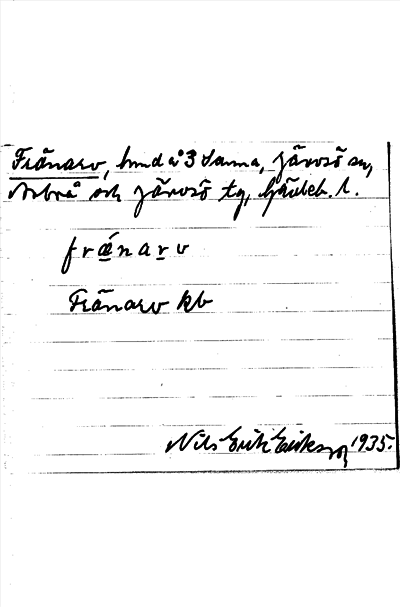 Fränarv, lund å 3 Sanna, Järvsö sn,
Arbrå och Järvsö tg, Gävleb. l.
frǽnarv
Fränarv kb
Nils Erik Erikson 1935.